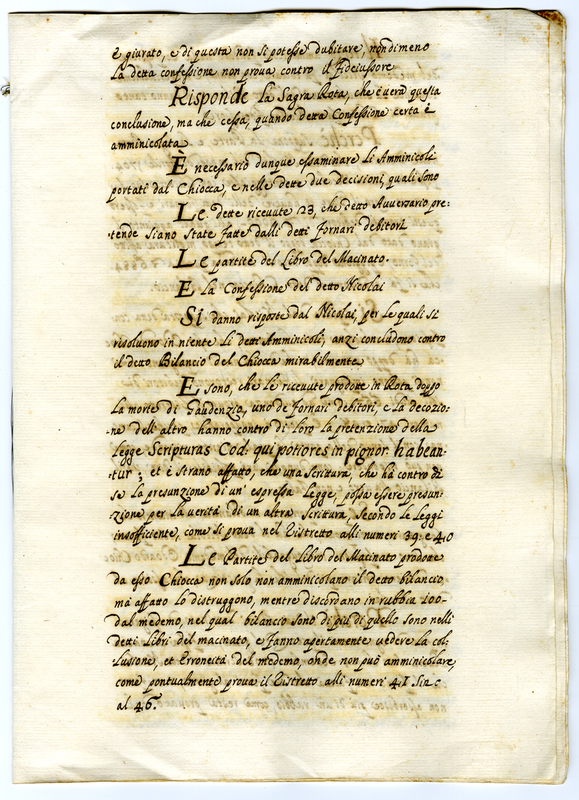 è giurato, e di questa non si potesse dubitare, nondimeno
la detta confessione non prova contro il Fideiussore
Risponde la Sagra Rota, che è vera questa
conclusione, ma che cessa, quando detta Confessione certa è
amminicolata
È necessario dunque essaminare li Amminicoli
portati dal Chiocca, e nelle dette due decisioni, quali sono
Le dette ricevute 23, che detto Avversario pre:
tende siano state fatte dalli detti Fornari debitori
Le partite del Libro del Macinato.
E la Confessione del detto Nicolai
Si danno risposte dal Nicolai, per le quali si
risoluono in niente li detti Amminicoli, anzi concludono contro
il detto Bilancio del Chiocca mirabilmente
E sono, che le ricevute prodotte in Rota doppo
la morte di Gaudenzio, uno de Fornari debitori, e la decozio:
ne dell'altro hanno contro di loro la pretenzione della
Legge Scripturas Cod: qui potiores in pignor: habean:
tur; et è strano affatto, che una scrittura, che ha contro di
se la presunzione di un' espressa Legge, possa essere presun:
zione per la verità di un altra scrittura, secondo le Leggi
insofficiente, come si prova nel Ristretto alli numeri 39: e 40
Le Partite del Libro del Macinato prodotte
da esso Chiocca non solo non amminicolano il detto bilancio
ma affatto lo distruggono, mentre discordano in rubbia 100=
dal medemo, nel qual' bilancio sono di più di quello sono nelli
detti Libri del macinato, e fanno apertamente vedere la col:
lussione, et Erroneità del medemo, onde non può amminicolare,
come pontualmente prova il Ristretto alli numeri 41 sin c
al 46.